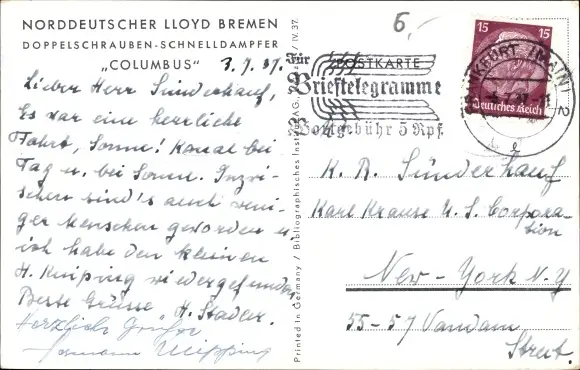 NORDDEUTSCHER LLOYD BREMEN
DOPPELSCHRAUBEN-SCHNELLDAMPFER
„COLUMBUS" 3.7.37.
Lieber Herr Sünderhauf,
Es war eine herrliche
Fahrt, Sonne! Kanal bei
Tag u. bei Sonne. Inzwi-
schen sind's auch weni-
ger Menschen geworden u
ich habe den kleinen
H. Knipping wiedergefunden
Beste Grüsse, H. Stader.
Herzliche Grüße
Hermann
Printed in Germany / Bibliographisches Institut AG, / IV. 37
6.-
POSTKARTE
Für
Brieftelegramme
Wortgebühr 5 Rpf.
FRANKFURT (MAIN) 2
15 15
Deutsches Reich
K. R. Sünderhauf
Karl Krause U. S. Corpora-
tion
New-York N.Y
55-57 Vandam
Street.